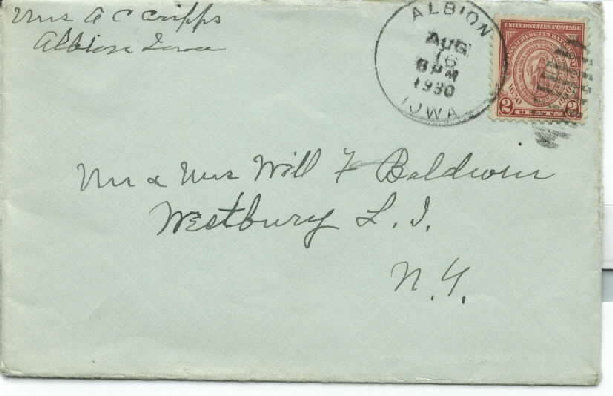 Mrs A C Cripps
Albion Iowa
ALBION
AUG
16
6 PM
1930
IOWA
UNITED STATES POSTAGE
2 CENTS 2
Mr & Mrs Will F Baldwin
Westbury L. I.
N. Y.